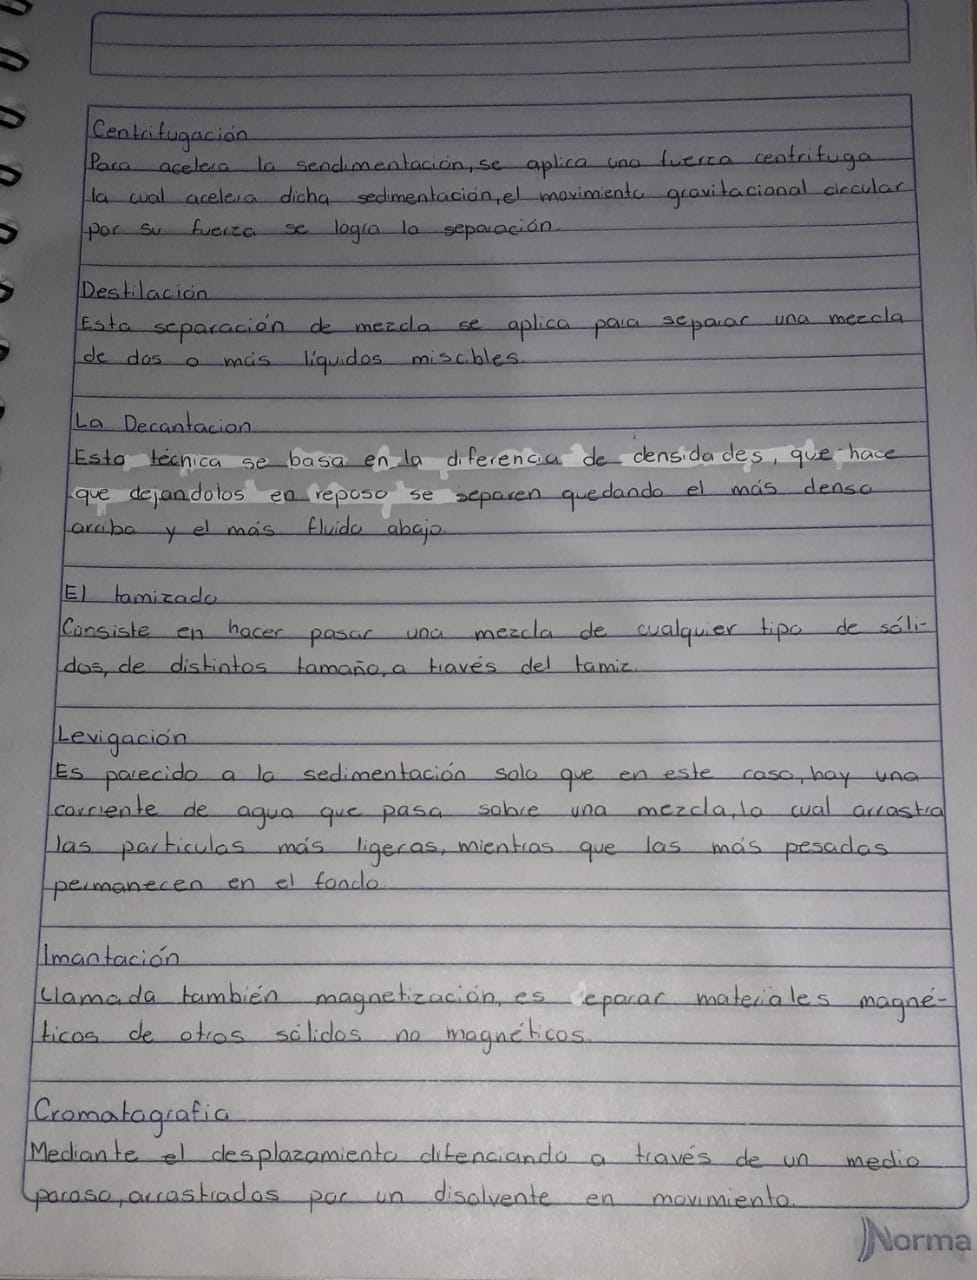 Centrifugación
Para acelera la sendimentación, se aplica una fuerza centrifuga
la cual acelera dicha sedimentación, el movimiento gravitacional circular
por su fuerza se logra la separación.
Destilación
Esta separación de mezcla se aplica para separar una mezcla
de dos o más líquidos miscibles.
La Decantacion
Esta técnica se basa en la diferencia de densidades, que hace
que dejandolos en reposo se separen quedando el más denso
arriba y el más fluido abajo.
El tamizado
Consiste en hacer pasar una mezcla de cualquier tipo de sóli-
dos, de distintos tamaño, a través del tamiz.
Levigación
Es parecido a la sedimentación solo que en este caso, hay una
corriente de agua que pasa sobre una mezcla, la cual arrastra
las particulas más ligeras, mientras que las más pesadas
permanecen en el fondo
Imantación
Llamada también magnetización, es eparar materiales magné-
ticos de otros sólidos no magnéticos.
Cromatografia
Mediante el desplazamiento difenciando a través de un medio
poroso, arrastrados por un disolvente en movimiento.
Norma